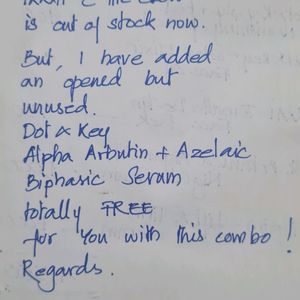 is out of stock now.
But, I have added
an opened but
unused.
Dot & Key
Alpha Arbutin + Azelaic
Biphasic Serum
totally FREE
for You with this combo !
Regards.